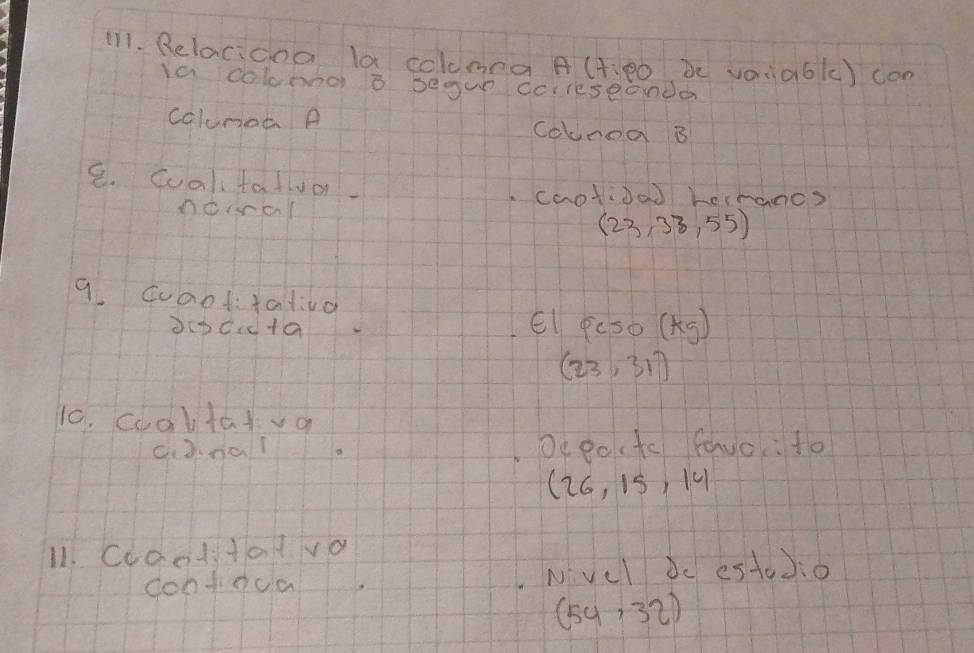 III. Relaciona la columna A (tipo de variable) con
la columna B segun corresponda
Columna A
Columna B
8. Cualitativa
nominal
. Cantidad hermanos
(23, 38, 55)
9. Cuantitativa
discreta .
. El peso (kg)
(23, 31)
10. Cualitativa
ordinal .
. Deporte favorito
(26, 15, 14)
11. Cuantitativa
continua .
. Nivel de estudio
(54, 32)